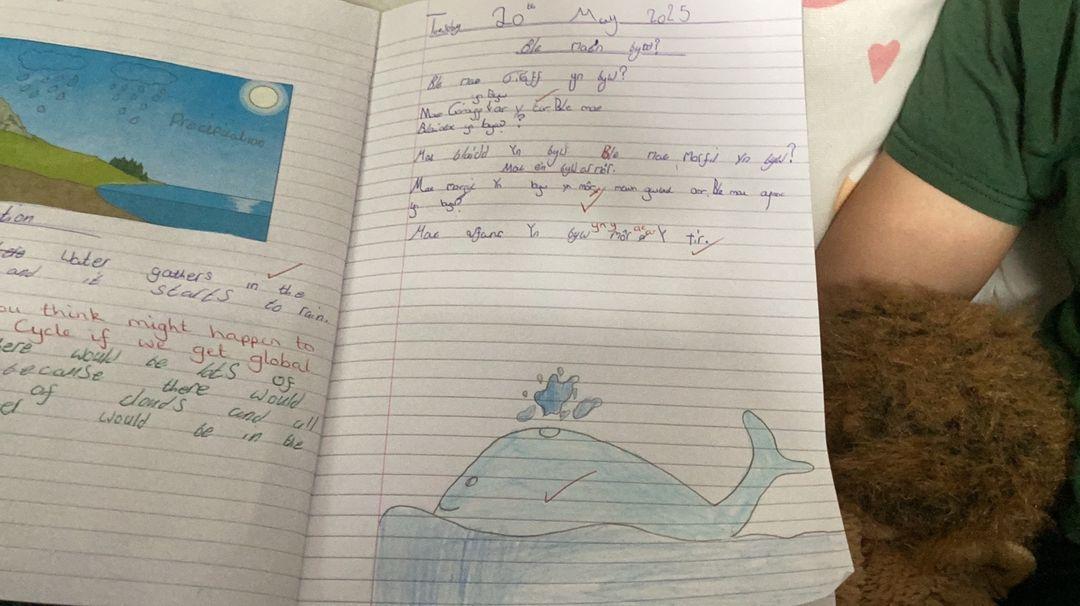 Precipitation
tion
Water gathers in the
and it starts to rain.
ou think might happen to
Cycle if we get global
ere would be lots of
because there would
of clouds and all
would be in the
Tuesday 20th May 2025
Ble mae'n byw?
Ble mae Giraff yn byw?
yn byw
Mae Giraff ar y tir. Ble mae
Blaidd yn byw?
Mae blaidd Yn byw Ble mae Morfil yn byw?
Mae ein byw ar môr.
Mae morfil Yn byw yn môr, mawn gwlad oer. Ble mae afanc
yn byw?
Mae afanc Yn byw yn y môr ac ar Y tir.